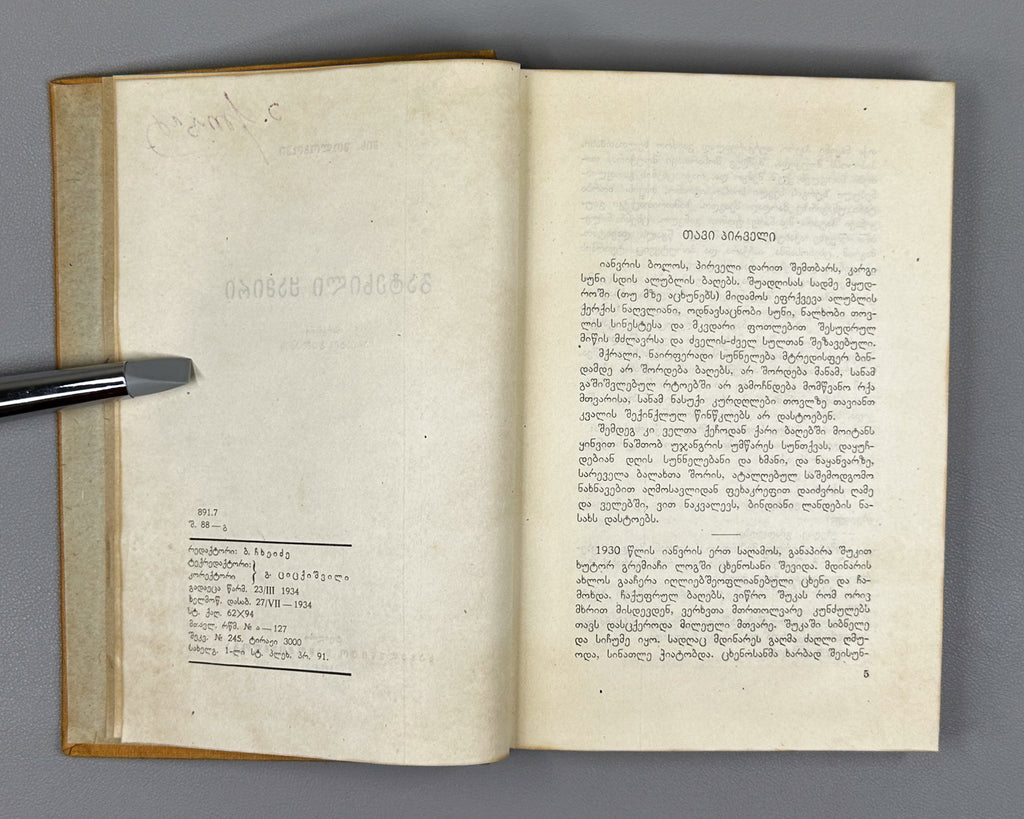 891.7
შ. 88 — გ
რედაქტორი: ბ. ჩხეიძე
ტექრედაქტორი:
კორექტორი } გ. ციცქიშვილი
გადაეცა წარმ. 23/III 1934
ხელმოწ. დასაბ. 27/VII — 1934
სტ. ქაღ. 62×94
მთავლ. რწმ. № ა — 127
შეკვ. № 245. ტირაჟი 3000
სახელგ. 1-ლი სტ. პლეხ. პრ. 91.
თავი პირველი
იანვრის ბოლოს, პირველი დარით შემთბარს, კარგი
სუნი სდის ალუბლის ბაღებს. შუადღისას სადმე მყუდ-
როში (თუ მზე აცხუნებს) მიდამოს ეფრქვევა ალუბლის
ქერქის ნაღვლიანი, ოდნავსაცნობი სუნი, ნალხობი თოვ-
ლის სინესტესა და მკვდარი ფოთლებით შესუდრულ
მიწის მძლავრსა და ძველის-ძველ სულთან შეზავებული.
მქრალი, ნაირფერადი სუნნელება მტრედისფერ ბინ-
დამდე არ შორდება ბაღებს, არ შორდება მანამ, სანამ
გაშიშვლებულ რტოებში არ გამოჩნდება მომწვანო რქა
მთვარისა, სანამ ნასუქი კურდღლები თოვლზე თავიანთ
კვალის შექინქლულ წინწკლებს არ დასტოებენ.
შემდეგ კი ველთა ქეჩოდან ქარი ბაღებში მოიტანს
ყინვით ნაშთობ უჯანგრის უმწარეს სუნთქვას, დაყუჩ-
დებიან დღის სუნნელებანი და ხმანი, და ნაყანვარზე,
სარეველა ბალახთა შორის, ატალღებულ საშემოდგომო
ნახნავებით აღმოსავლიდან ფეხაკრეფით დაიძვრის ღამე
და ველებში, ვით ნაკვალევს, ბინდიანი ლანდების ნა-
სახს დასტოებს.
1930 წლის იანვრის ერთ საღამოს, განაპირა შუკით
ხუტორ გრემიაჩი ლოგში ცხენოსანი შევიდა. მდინარის
ახლოს გააჩერა იღლიებშეოფლიანებული ცხენი და ჩა-
მოხდა. ჩაქუფრულ ბაღებს, ვიწრო შუკას რომ ორივ
მხრით მისდევდენ, ვერხვთა მთრთოლვარე კუნძულებს
თავს დასცქეროდა მილეული მთვარე. შუკაში სიბნელე
და სიჩუმე იყო. სადღაც მდინარეს გაღმა ძაღლი ღმუ-
ოდა, სინათლე ჭიატობდა. ცხენოსანმა ხარბად შეისუნ-
5